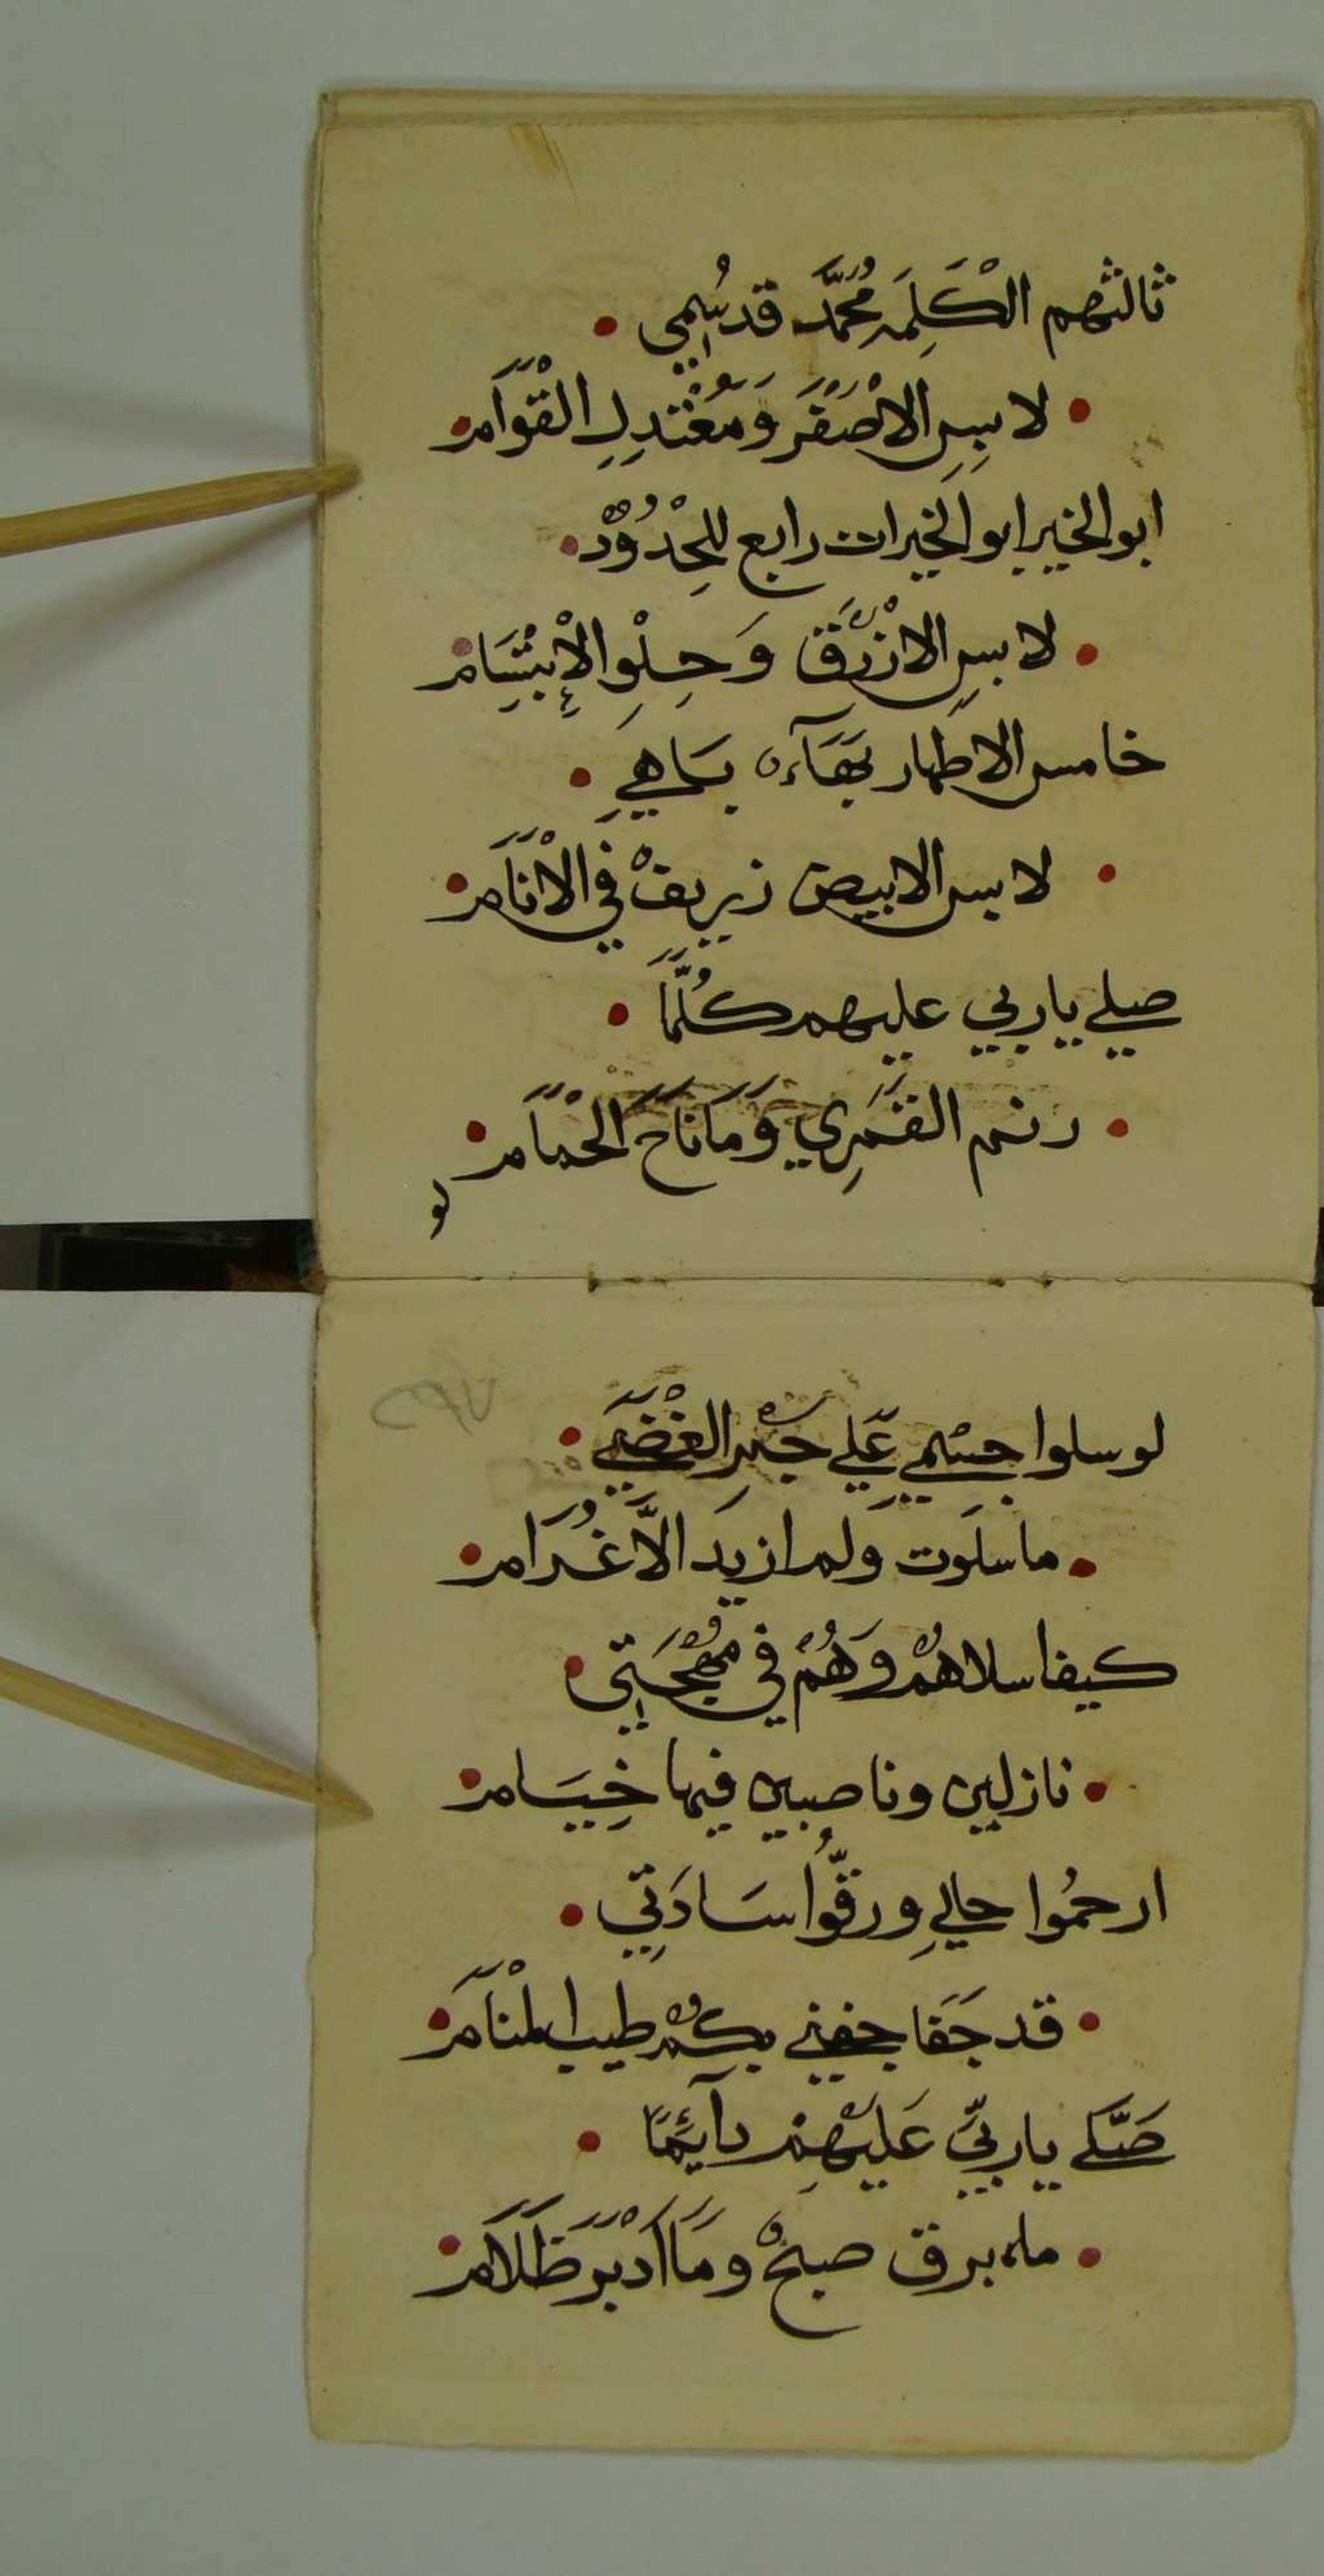 ثالثهم الْكَلِمَه مُحَمَّد قد سُمِي
لابِسِ الاصْفَر وَمُعْتَدِلِ القْوَام
ابو الخير ابو الخيرات رابع للحِدُوْد
لابسِ الازْرَق وَحِلْوِ الْاِبْتِسَام
خامس الاطهار بَهَآءه بَاهي
لابس الابيض زريفْ في الْانَام
صلي يا ربي عليهم كُلَّمَا
رنم القَمَرِي وَمَا نَاحَ الحْمَام
لو
لو سلوا جسْمي عَلي جَمْرِ الغْضَي
ما سلَوت ولم ازيدَ الَّا غُرَام
كيف اسلاهُمْ وَهُمْ في مُهْجَتِي
نازلين وناصبين فيها خِيَام
ارحمُوا حالي ورقُّوا سَادَتِي
قد جَفَا جفني بكُمْ طيب المْنَام
صَلي يا ربّي عَلَيْهِمْ دآئِمًا
ماه برق صبحْ وَمَا ادْبَر ظَلَام